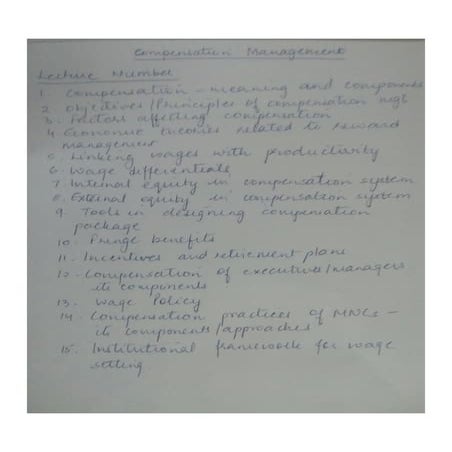 Compensation Management
Lecture Number
1. Compensation - meaning and components
2. Objectives/Principles of compensation mgt
3. Factors affecting compensation
4. Economic theories related to reward
management
5. Linking wages with productivity
6. Wage differentials
7. Internal equity in compensation system
8. External equity in compensation system
9. Tools in designing compensation
package
10. Fringe benefits
11. Incentives and retirement plans
12. Compensation of executives/managers
its components
13. Wage Policy
14. Compensation practices of MNCs -
its components/approaches
15. Institutional framework for wage
setting